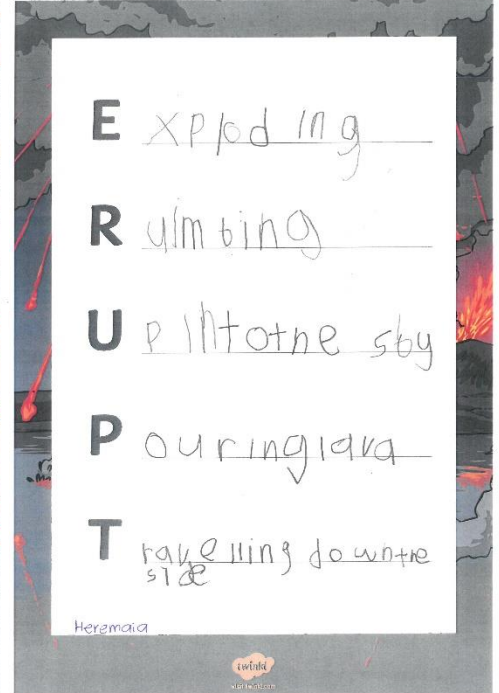 Exploding
Rulmbing
Up Intothe sby
Pouringlava
Travelling downthe
side
Heremaia
twinkl